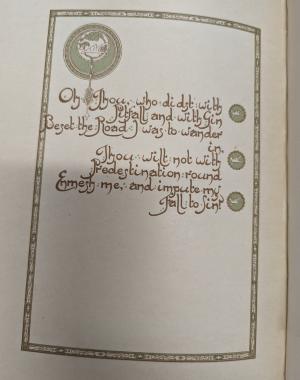 Oh Thou, who didst with
Pitfall and with Gin
Beset the Road I was to wander
in,
Thou wilt not with
Predestination round
Enmesh me, and impute my
Fall to Sin?